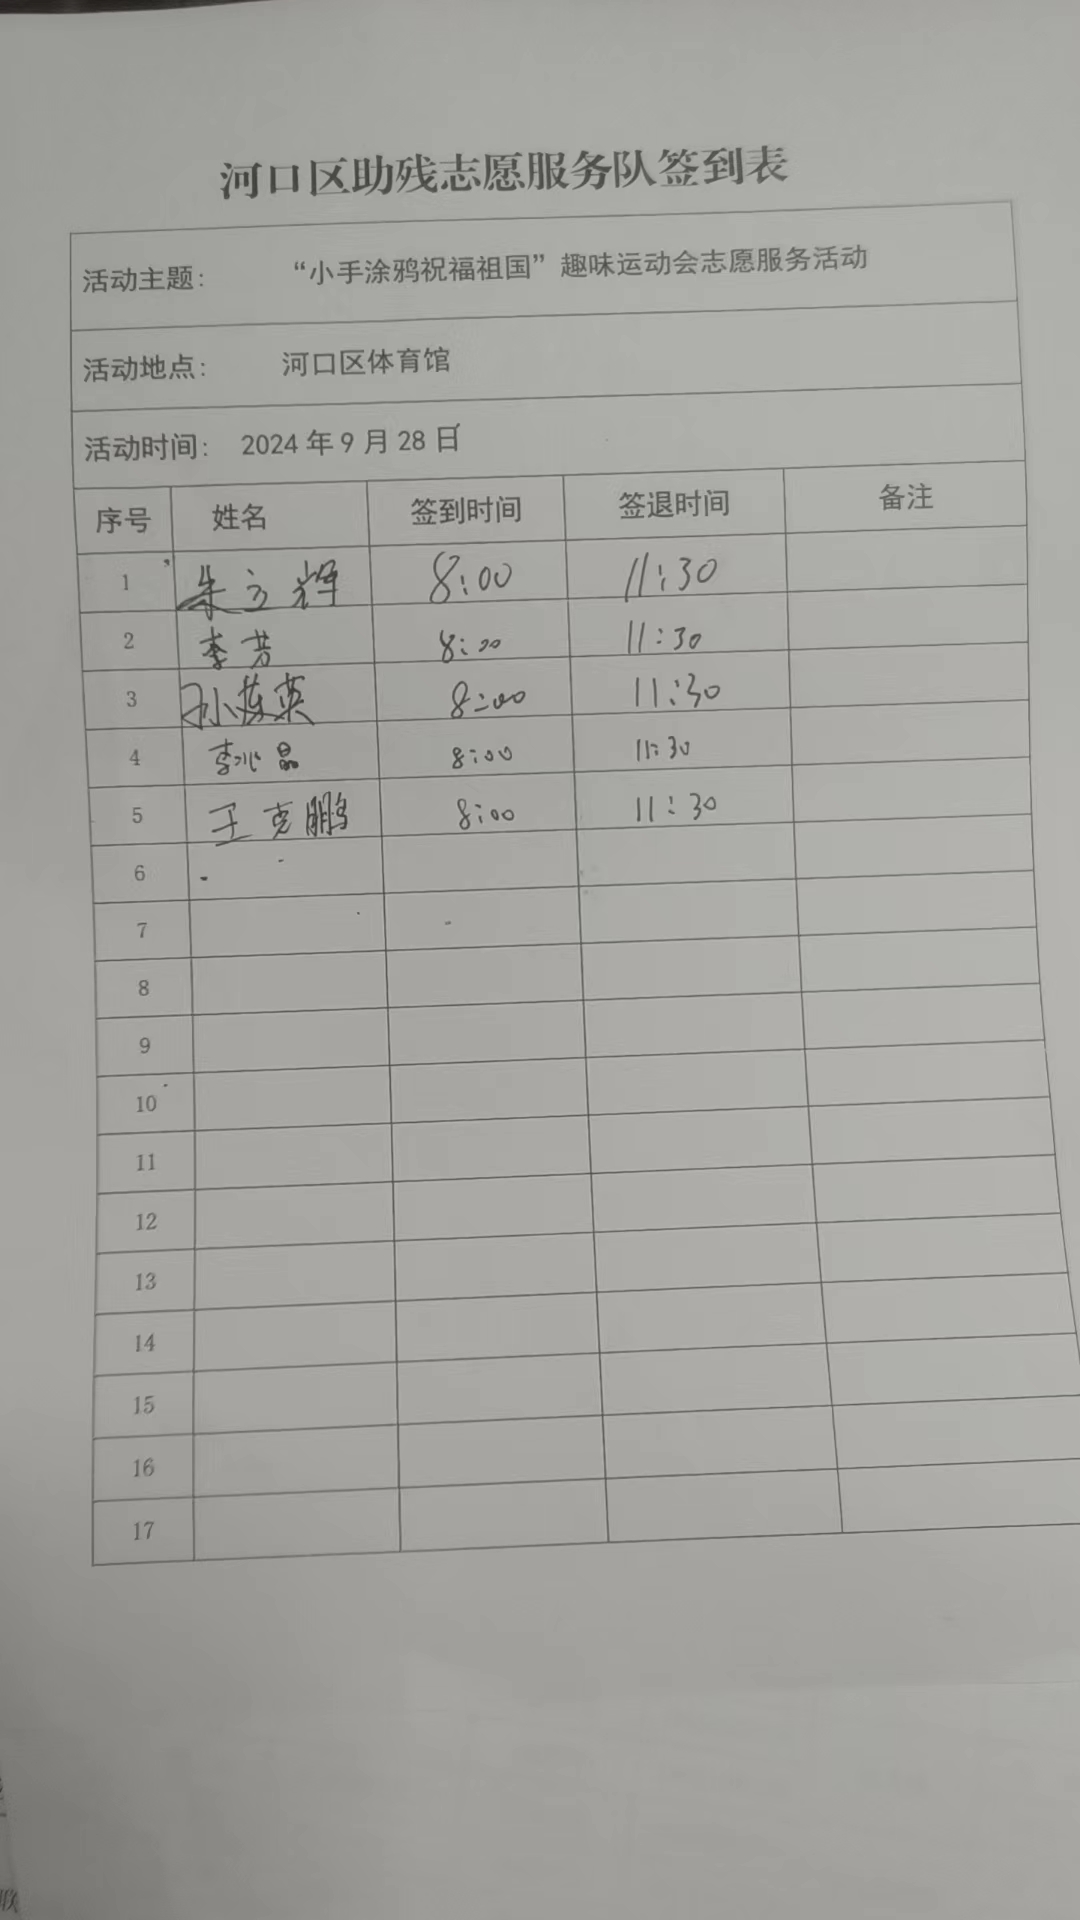 河口区助残志愿服务队签到表
活动主题： “小手涂鸦祝福祖国”趣味运动会志愿服务活动
活动地点： 河口区体育馆
活动时间： 2024年9月28日
序号 姓名 签到时间 签退时间 备注
1 朱立辉 8:00 11:30
2 李芳 8:00 11:30
3 8:00 11:30
4 8:00 11:30
5 王克鹏 8:00 11:30
6
7
8
9
10
11
12
13
14
15
16
17